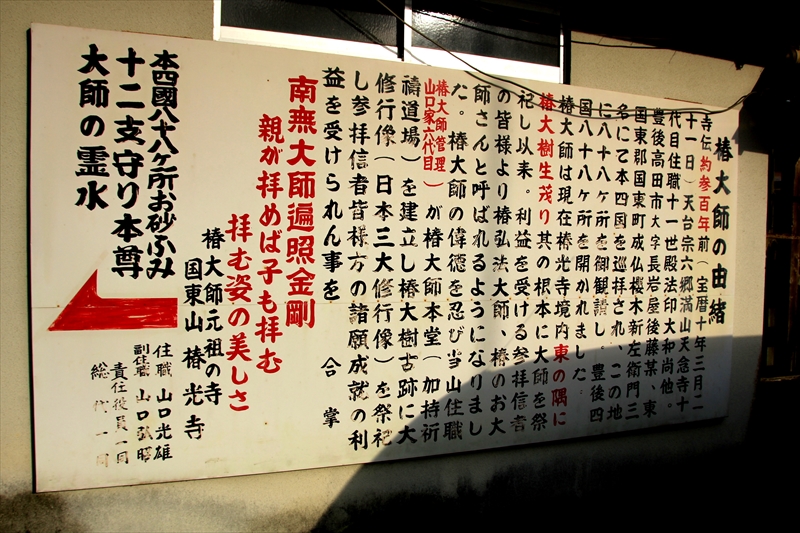 椿大師の由緒
寺伝約参百年前(宝暦十年三月二
十一日)天台宗六郷満山天念寺十
代目住職十一世殿法印大和尚他。
豊後高田市大字長岩屋後藤某、東
国東郡国東町成仏櫻木新左衛門三
名にて本四国を巡拝され、この地
に八十八ヶ所を御観請し、豊後四
国八十八ヶ所を開かれました。
椿大師は現在椿光寺境内東の隅に
椿大樹生茂り其の根本に大師を祭
祀し以来。利益を受ける参拝信者
の皆様より椿弘法大師、椿のお大
師さんと呼ばれるようになりまし
た。椿大師の偉徳を忍び当山住職
椿大師管理
山口家六代目
)が椿大師本堂(加持祈
禱道場)を建立し椿大樹古跡に大
修行像(日本三大修行像)を祭祀
し参拝信者皆様方の諸願成就の利
益を受けられん事を 合掌
南無大師遍照金剛
親が拝めば子も拝む
拝む姿の美しさ
椿大師元祖の寺
国東山椿光寺
住職 山口光雄
副住職 山口弘昭
責任役員一同
総代一同
本四國八十八ヶ所お砂ふみ
十二支守り本尊
大師の霊水